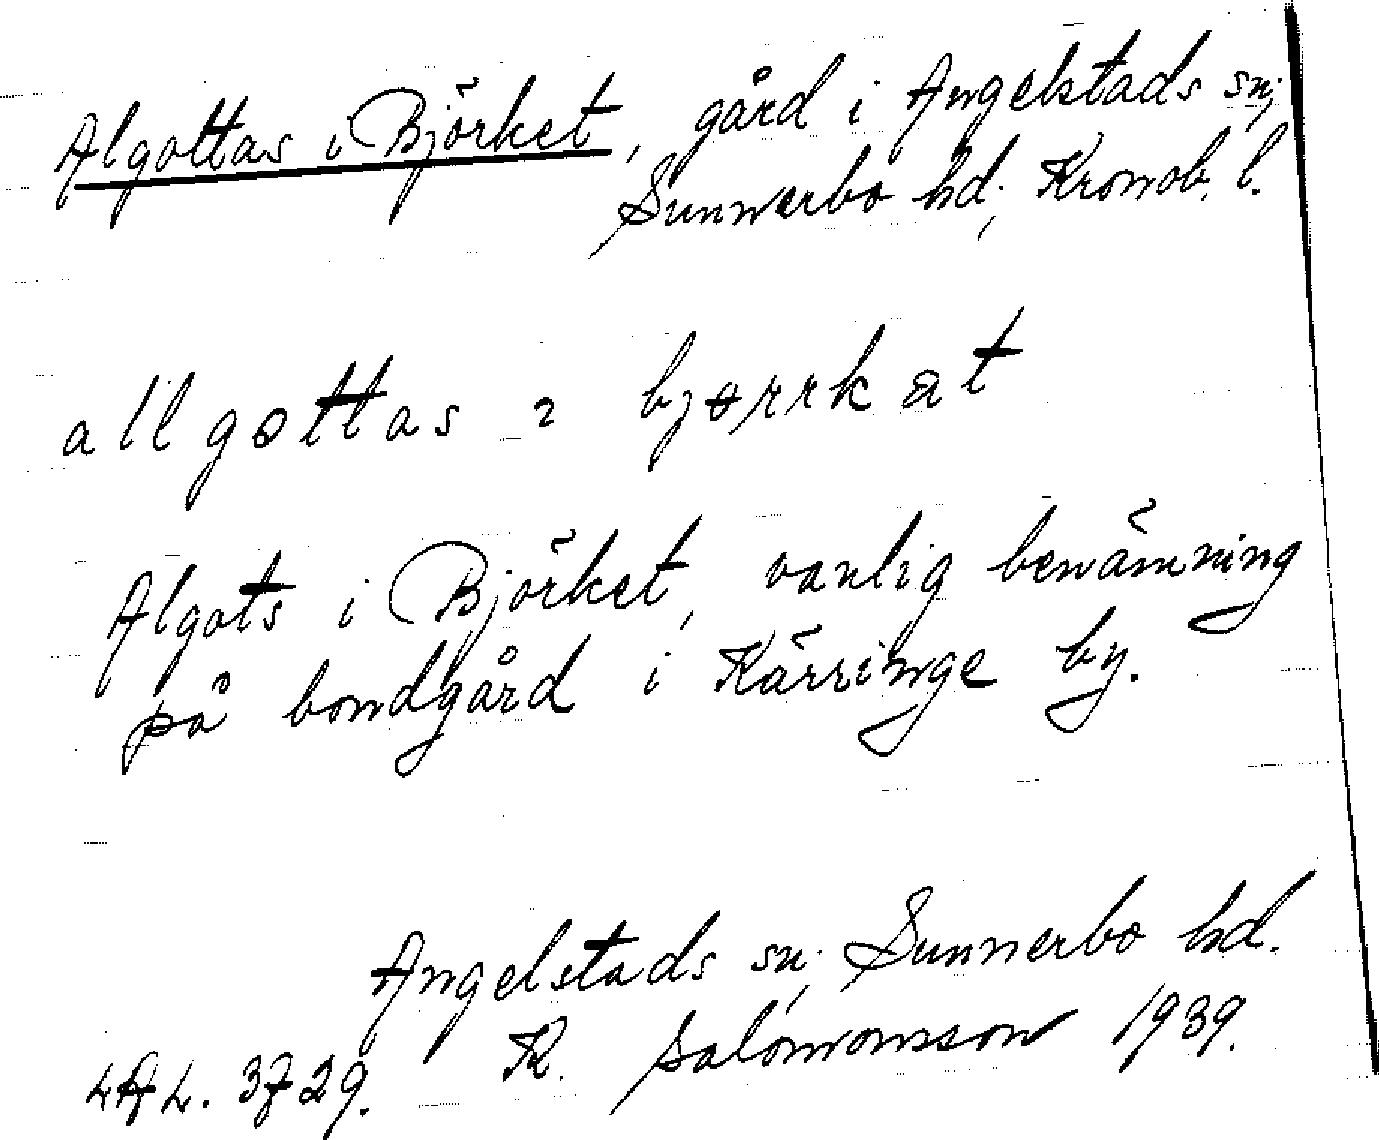 Algottas i Björket, gård i Angelstads sn,
Sunnerbo hd, Kronob. l.
allgottas i bjørrkat
Algots i Björket, vanlig benämning
på bondgård i Kärringe by.
Angelstads sn, Sunnerbo hd.
LAL. 3729. K. Salomonsson 1939.